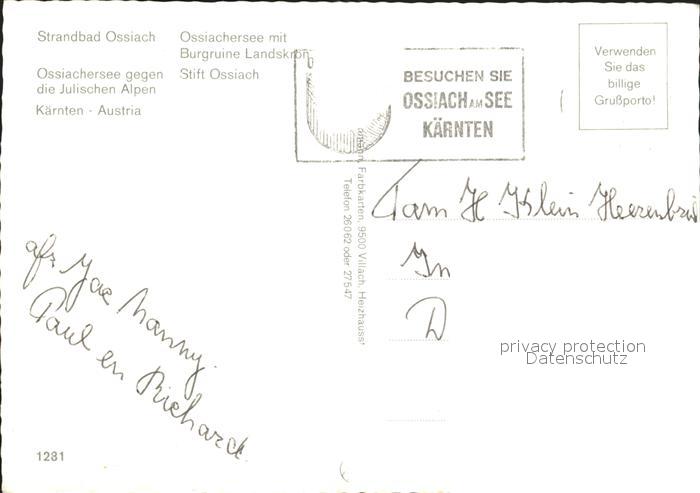 Strandbad Ossiach
Ossiachersee gegen
die Julischen Alpen
Kärnten - Austria
Ossiachersee mit
Burgruine Landskron
Stift Ossiach
BESUCHEN SIE
OSSIACH AM SEE
KÄRNTEN
Verwenden
Sie das
billige
Grußporto!
Farbkarten, 9500 Villach, Heizhausstr
Telefon 26062 oder 27547
Fam H Klein
D
privacy protection
Datenschutz
afz Jac Nanny
Paul en Richard
1281